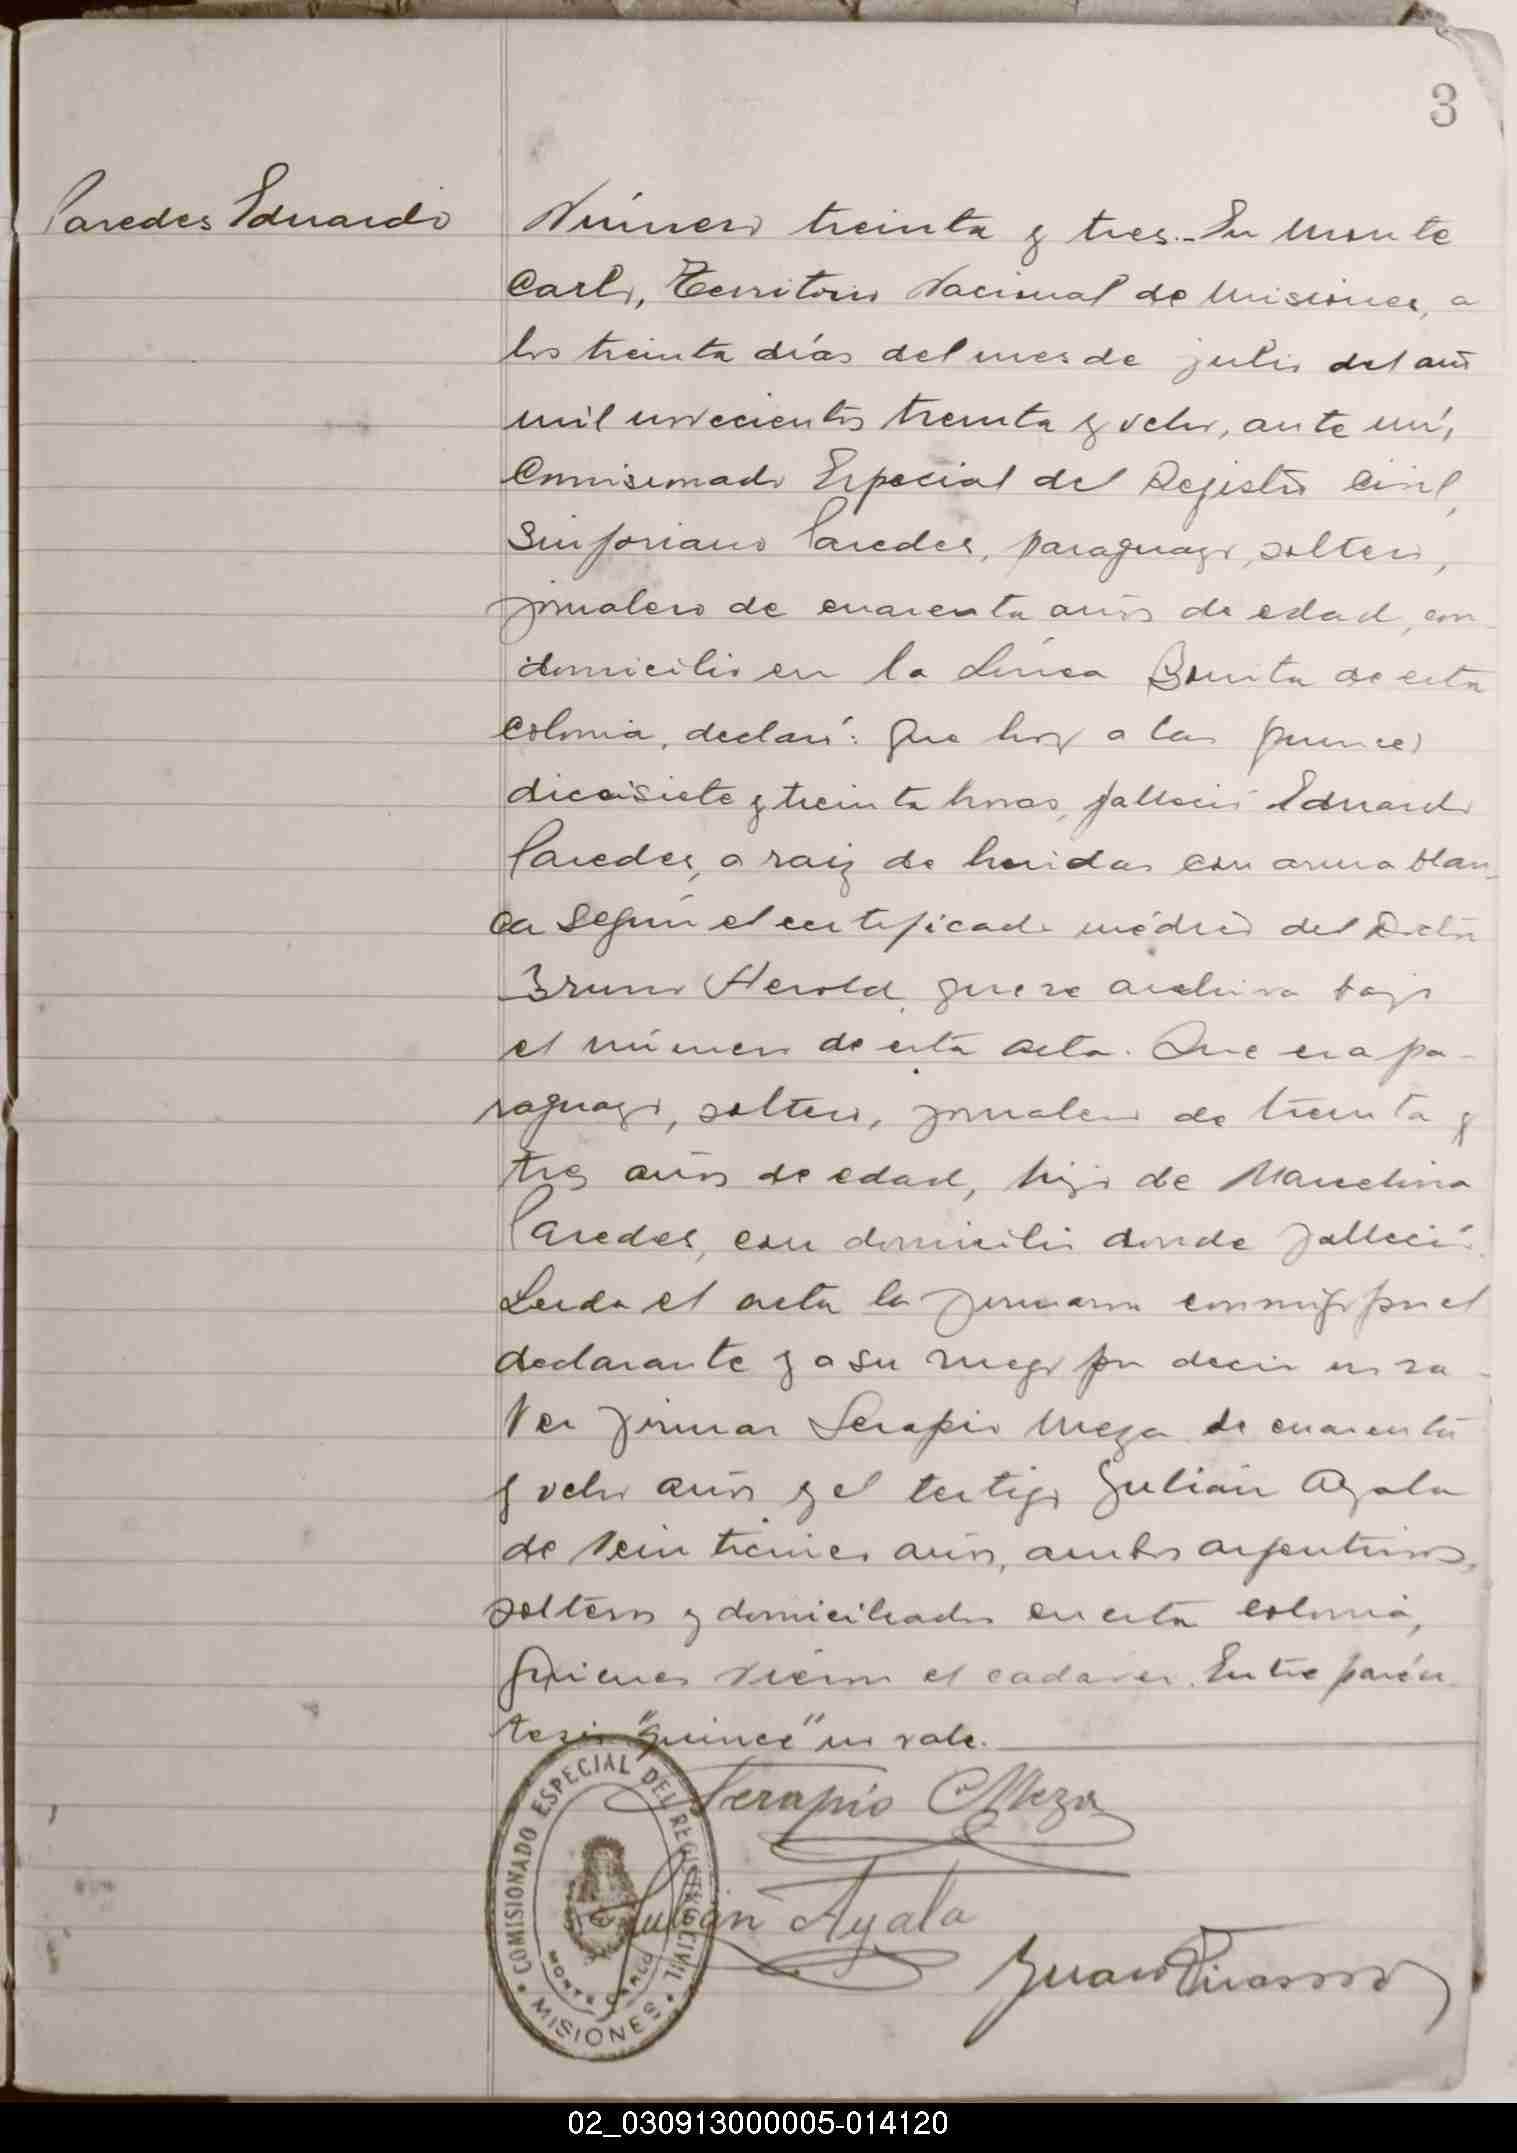 3
Paredes Eduardo
Número treinta y tres.- En Monte
Carlo, Territorio Nacional de Misiones, a
los treinta días del mes de julio del año
mil novecientos treinta y ocho, ante mí,
Comisionado Especial del Registro Civil,
Sinforiano Paredes, paraguayo, soltero,
jornalero de cuarenta años de edad, con
domicilio en la Línea Bonita de esta
colonia, declaró: Que hoy a las (quince)
diecisiete y treinta horas, falleció Eduardo
Paredes, a raiz de heridas con arma blan-
ca según el certificado médico del Doctor
Bruno Herold, que se archiva bajo
el número de esta acta. Que era pa-
raguayo, soltero, jornalero de treinta y
tres años de edad, hijo de Marcelina
Paredes, con domicilio donde falleció.
Leida el acta la firmaron conmigo por el
declarante y a su ruego por decir no sa-
ber firmar Serapio Meza de cuarenta
y ocho años y el testigo Julián Ayala
de veintinueve años, ambos argentinos,
solteros y domiciliados en esta colonia,
quienes vieron el cadaver. Entre parén-
tesis "quince" no vale.
Serapio Meza
Julián Ayala
Juan
COMISIONADO ESPECIAL DEL REGISTRO CIVIL
MONTE CARLO
MISIONES
02_030913000005-014120